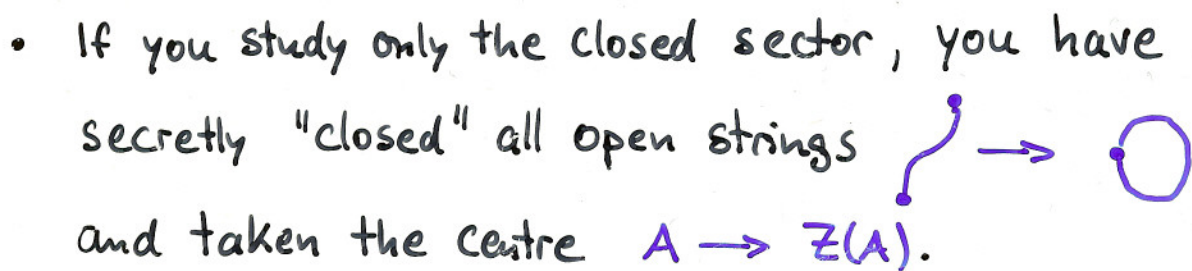 • If you study only the closed sector, you have
secretly "closed" all open strings →
and taken the centre A → Z(A).